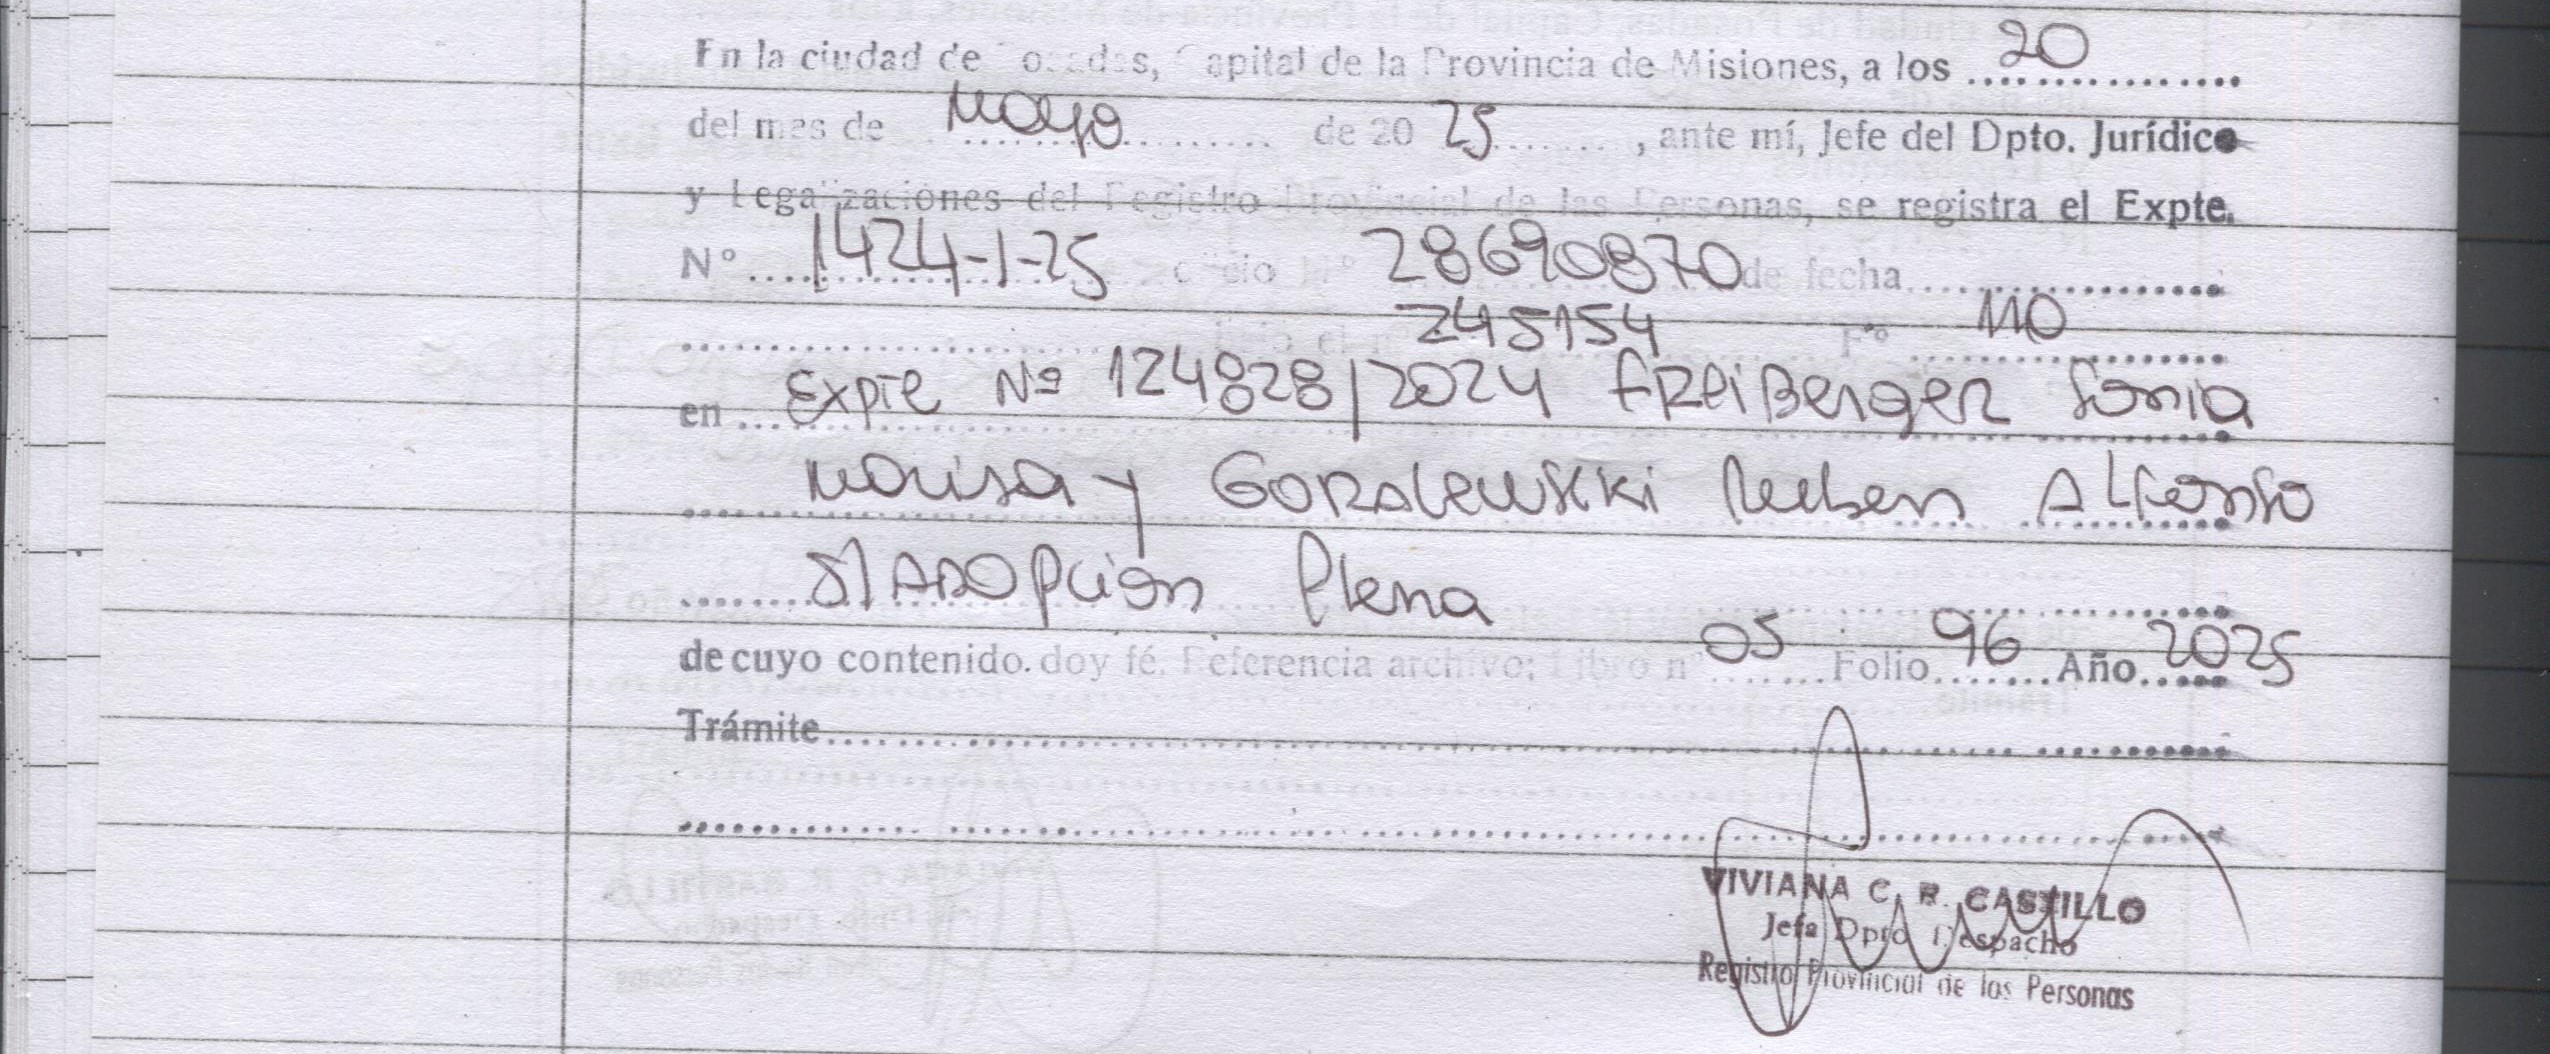 En la ciudad de Posadas, Capital de la Provincia de Misiones, a los 20
del mes de Mayo de 20 25, ante mí, Jefe del Dpto. Jurídico
y Legalizaciones del Registro Provincial de las Personas, se registra el Expte.
N° 1424-1-25 oficio N° 28690870 de fecha
245154 F° 110
en Expte Nº 124828/2024 FREIBERGER Sonia
Marisa y GORALEWSKI Ruben ALFonso
S/ ADOPcion Plena
de cuyo contenido. doy fé. Referencia archivo: Libro n° 05 Folio 96 Año 2025
Trámite
VIVIANA C. R. CASTILLO
Jefa Dpto Despacho
Registro Provincial de las Personas